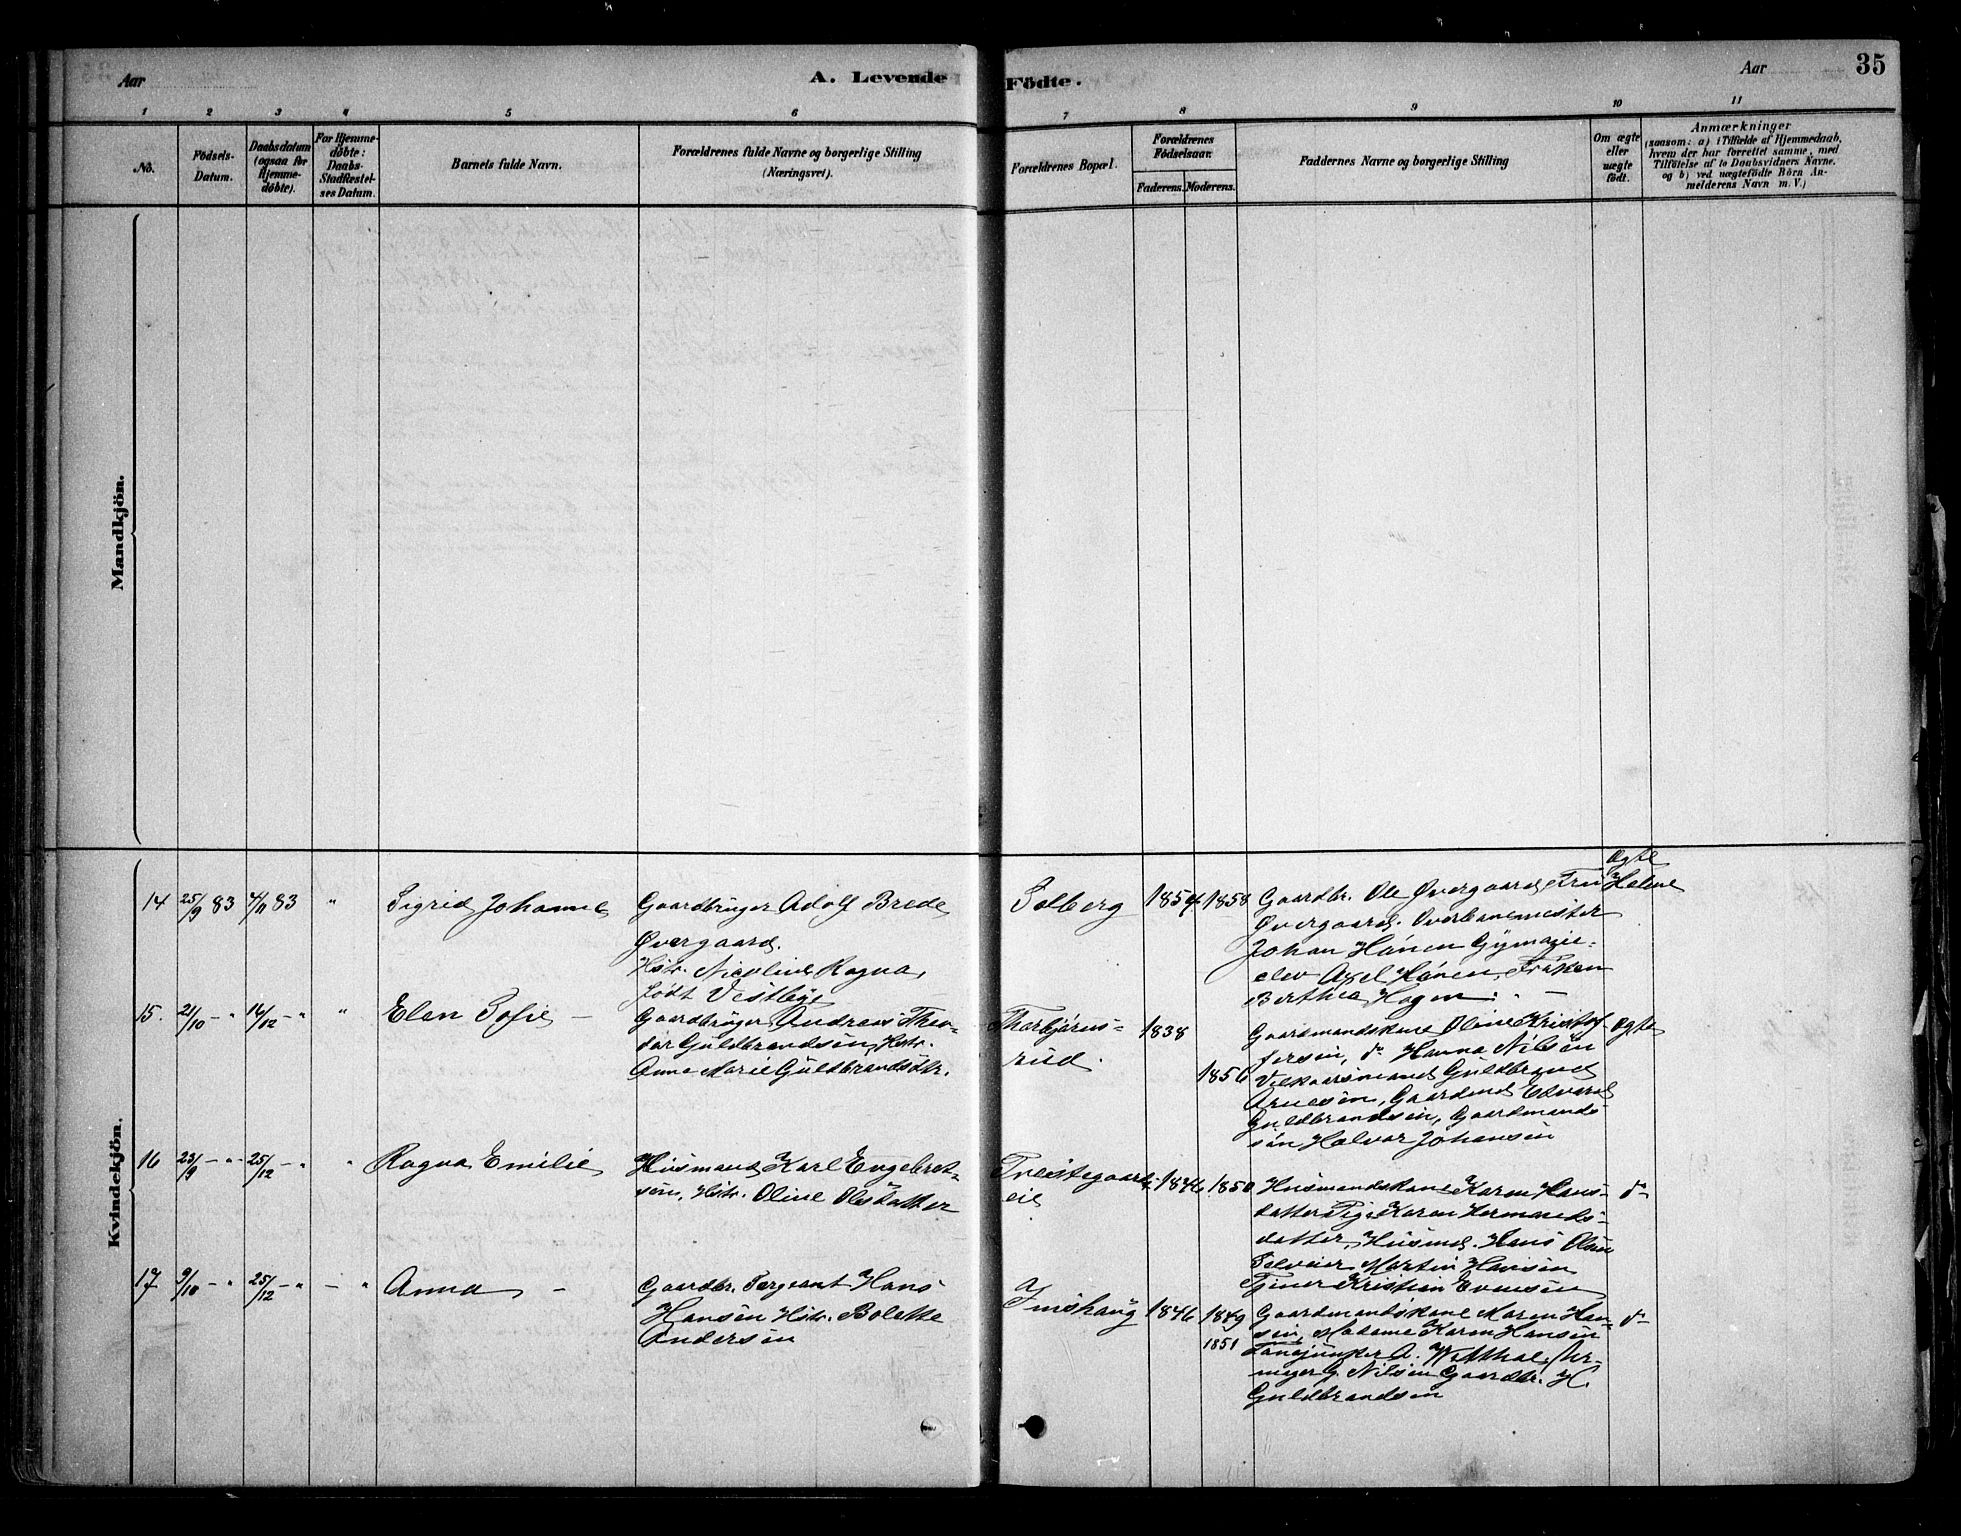 Aar
A. Levende
Födte.
Aar
35
1 2 3 4 5 6 7 8 9 10 11
No.
Födsels-
Datum.
Daabsdatum
(ogsaa for
Hjemme-
döbte).
For Hjemme-
döbte:
Daabs-
Stadfæstel-
ses Datum.
Barnets fulde Navn.
Forældrenes fulde Navne og borgerlige Stilling
(Næringsvei).
Forældrenes Bopæl.
Forældrenes
Födselsaar.
Faderens. Moderens.
Faddernes Navne og borgerlige Stilling
Om ægte
eller
uægte
födt.
Anmærkninger
(saasom: a) i Tilfælde af Hjemmedaab,
hvem der har forrettet samme, med
Tilföielse af to Daabsvidners Navne.
og b) ved uægtefödte Börn An-
melderens Navn m. V.)
Mandkjön.
Kvindekjön.
14 25/9 83 4/11 83 " Sigrid Johanne
Gaardbruger Adolf Brede
Øvergaard.
Hstr. Nicoline Ragna,
født Vestbye
Solberg 1854 1858
Gaardbr. Ole Øvergaard, Fru Helene
Øvergaard. Overbanemester
Johan Hånen Gymnasie-
elev Axel Hånen, Frøken
Berthea Hagen
Ægte
15. 21/10 - " 16/12 - " " Elen Sofie -
Gaardbruger Andreas Theo-
dor Guldbrandsen, Hstr.
Anne Marie Guldbrandsdtr.
Thorbjørns-
rud.
1838
1856
Gaardmandskone Oline Kristof-
fersen, do Hanna Nilsen
Vilkaarsmand Guldbrand
Arnesen, Gaardmd Edvard
Guldbrandsen, Gaardmands-
søn Halvor Johansen
Ægte
16 23/9 - " 25/12 - " " Ragna Emilie
Husmand Karl Engebret-
sen, Hstr. Oline Olsdatter
Prestegaards-
eie
1846 1850
Husmandskone Karen Hans-
datter Pige Karen Hermands-
datter, Husmd. Hans Olsen
Martin Hansen
Tjener Kristian Evensen
do
17 9/10 - " 25/12 - " - " Anna -
Gaardbr. Sergeant Hans
Hansen Hstr. Bolette
Andersen
1846 1849
1851
Gaardmandskone Maren Han-
sen, Madame Karen Hansen
A. Witthal, Ur-
mager G. Nilsen Gaardbr. H.
Guldbrandsen
do